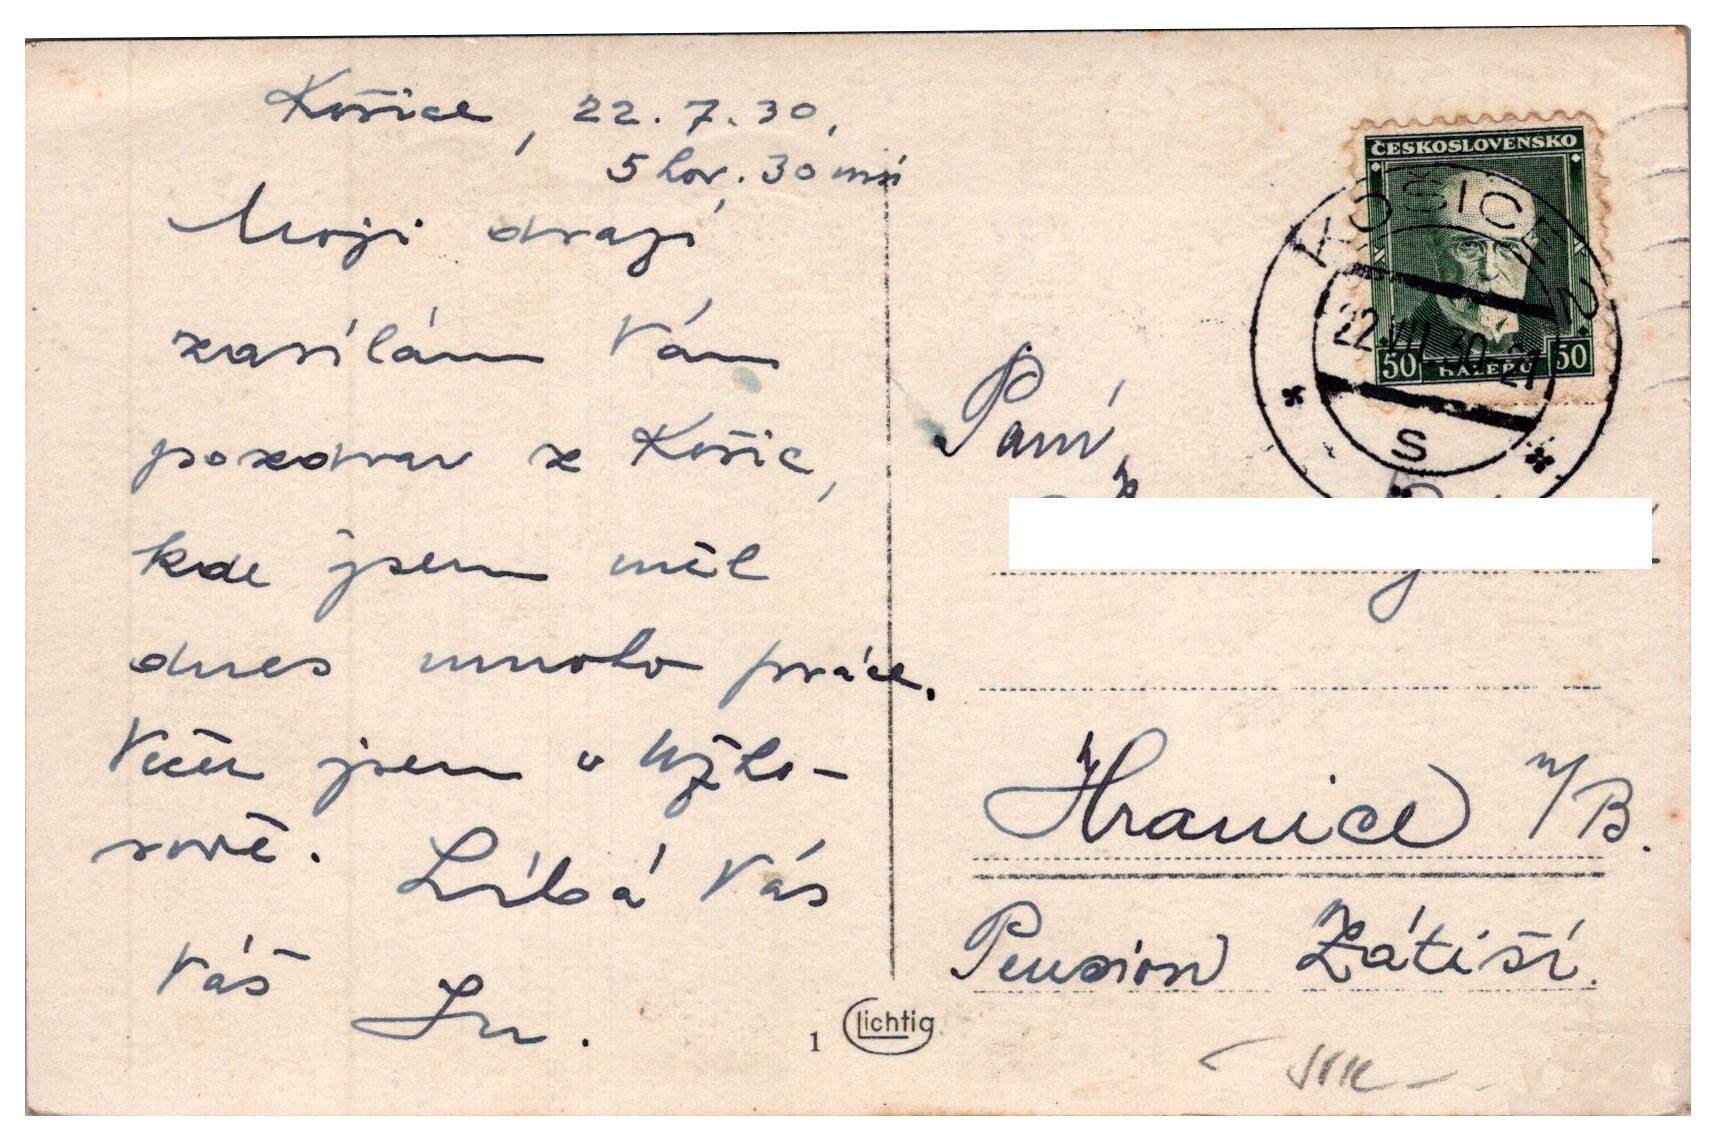 Košice, 22.7.30,
5 hov. 30 min
Moji drazí
zasílám Vám
pozdrav z Košic,
kde jsem měl
dnes mnoho práce.
Večer jsem v Užho-
rodě. Líbá Vás
Váš
1 Lichtig
ČESKOSLOVENSKO
50 HALÉŘŮ 50
KOŠICE 2
22.VII.30-21
S
Paní
Hranice n/B.
Pension Zátiší.